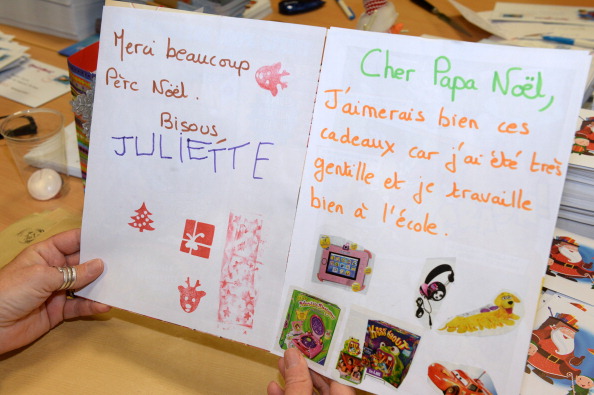 Merci beaucoup
Père Noël.
Bisous
JULIETTE
Cher Papa Noël,
J'aimerais bien ces
cadeaux car j'ai été très
gentille et je travaille
bien à l'école.